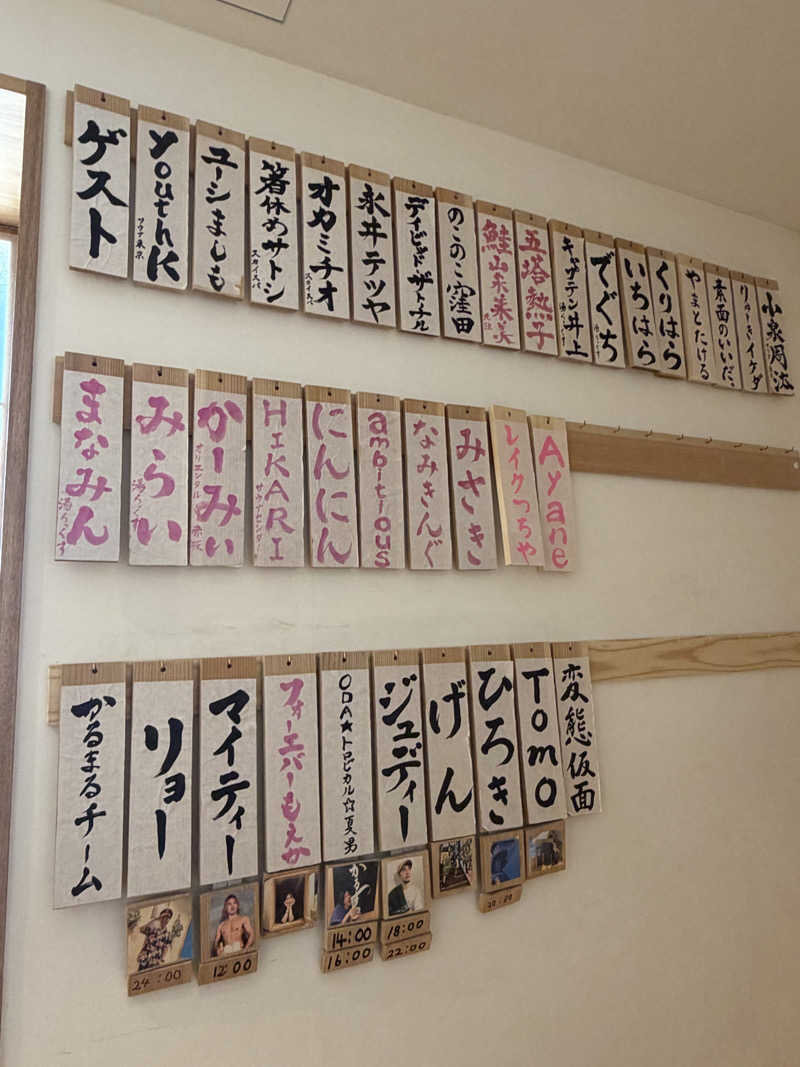 ゲスト
youthK
サウナ東京
ユーシましも
箸休めサトシ
スカイスパ
オカミチオ
スカイスパ
永井テツヤ
デイビッド・ザトナル
のこのこ窪田
鮭山未菜美
五塔熱子
キャプテン井上
湯らっくす
でぐち
湯らっくす
いちはら
くりはら
やまとたける
素面のいいだ。
りゅーきイケダ
まなみん
湯らっくす
みらい
湯らっくす
かーみぃ
オリエンタル赤坂
HIKARI
サウナセンター
にんにん
ambitious
なみきんぐ
みさき
レイクつちや
Ayane
かるまるチーム
リョー
24:00
マイティー
12:00
フォーエバーもえか
ODA★トロピカル☆夏男
14:00
16:00
ジュディー
18:00
22:00
げん
ひろき
Tomo
変態仮面